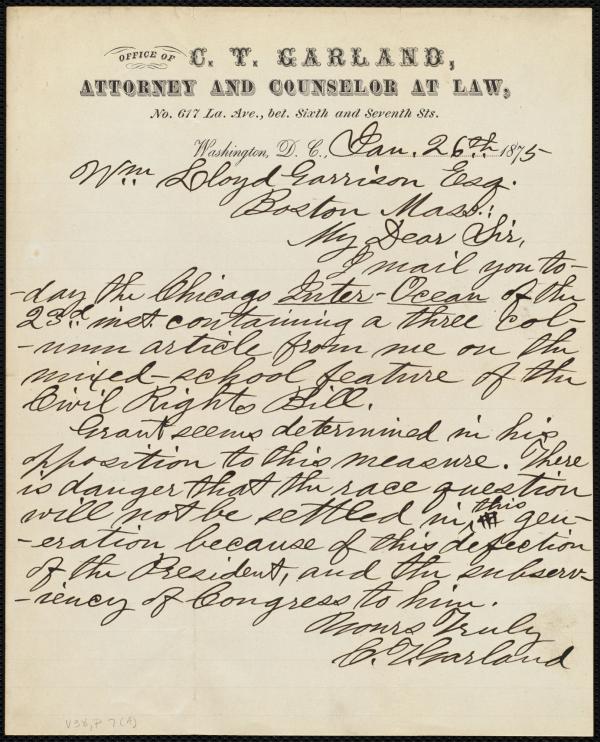 OFFICE OF C. T. GARLAND,
ATTORNEY AND COUNSELOR AT LAW,
No. 617 La. Ave., bet. Sixth and Seventh Sts.
Washington, D. C., Jan. 26th 1875
Wm Lloyd Garrison Esq.
Boston Mass.:
My Dear Sir,
I mail you to-
-day the Chicago Inter-Ocean of the
23d inst. containing a three col-
-umn article from me on the
mixed-school feature of the
Civil Rights Bill.
Grant seems determined in his
opposition to this measure. There
is danger that the race question
will not be settled in this gen-
-eration because of this defection
of the President, and the subserv-
-iency of Congress to him.
Yours Truly
C. T. Garland
V38, P 7(A)